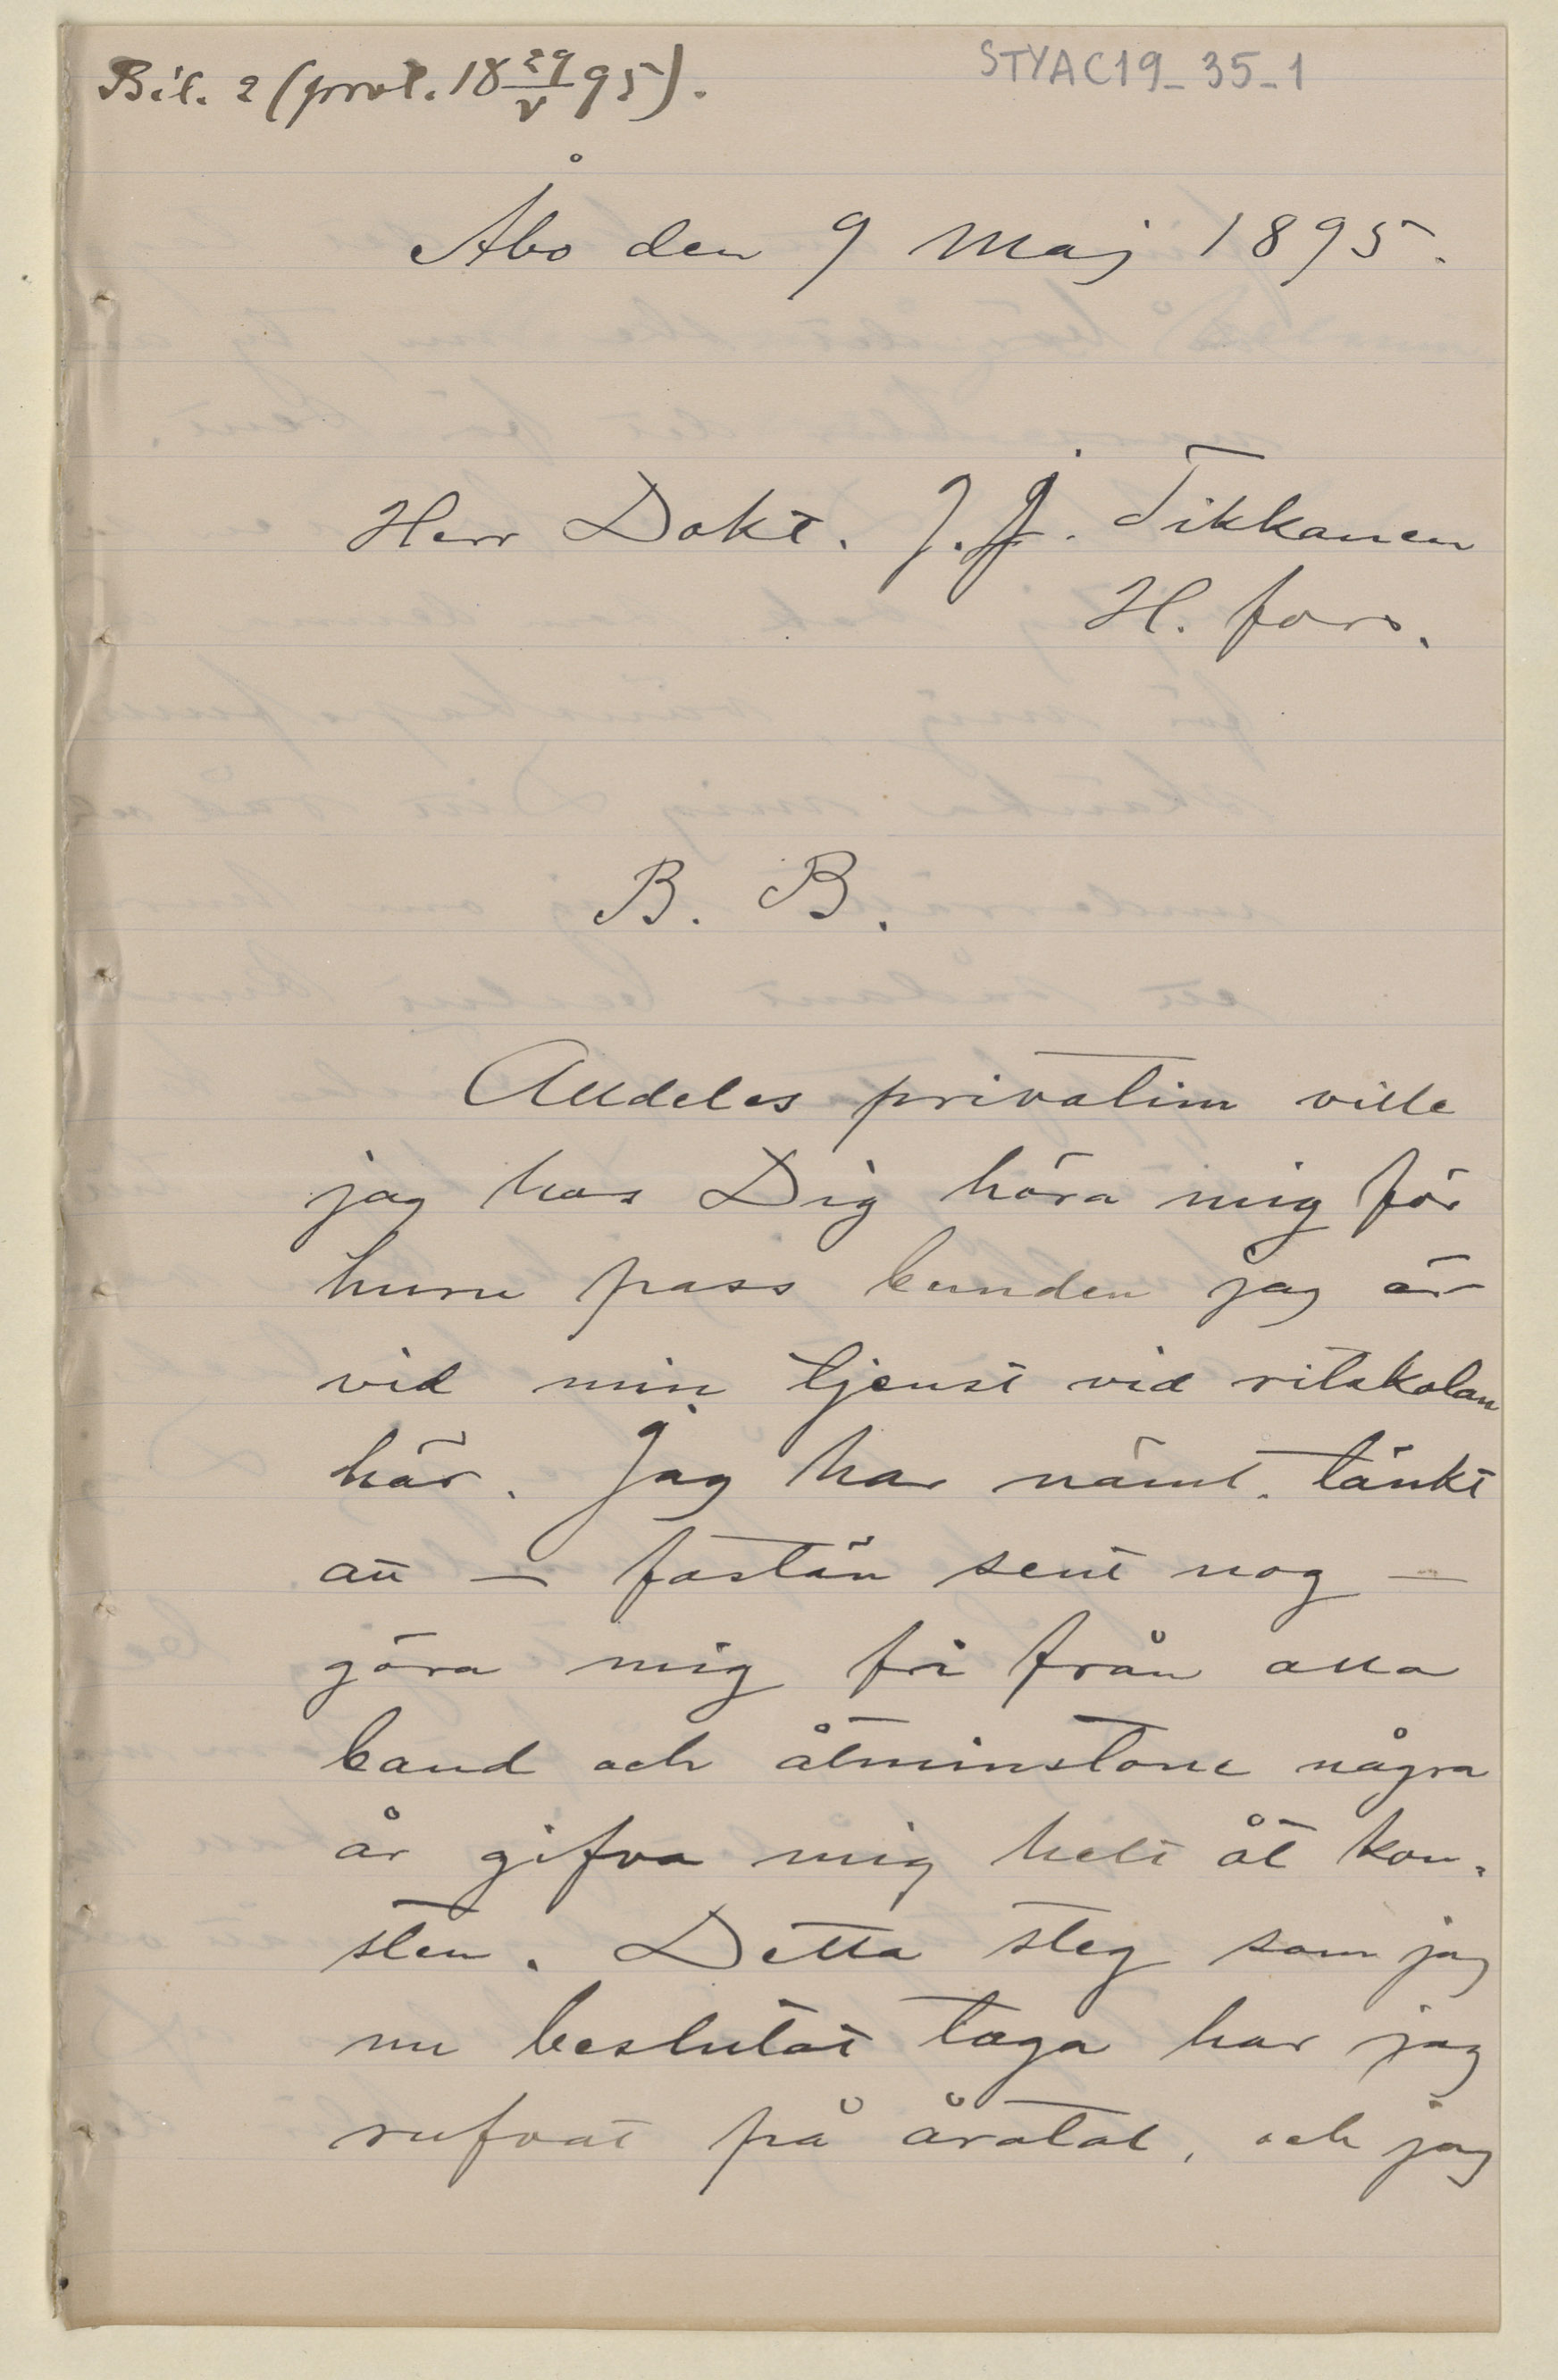 Bil. 2 (prot. 18 29/V 95).
STYAC19_35_1
Åbo den 9 Maj 1895.
Herr Dokt. J. J. Tikkanen
H. fors.
B. B.
Alldeles privatim ville
jag hos Dig höra mig för
huru pass bunden jag är
vid min tjenst vid ritskolan
här. Jag har näml. tänkt
att — fastän sent nog —
göra mig fri från alla
band och åtminstone några
år gifva mig helt åt kon-
sten. Detta steg som jag
nu beslutat taga har jag
rufvat på åratal, och jag